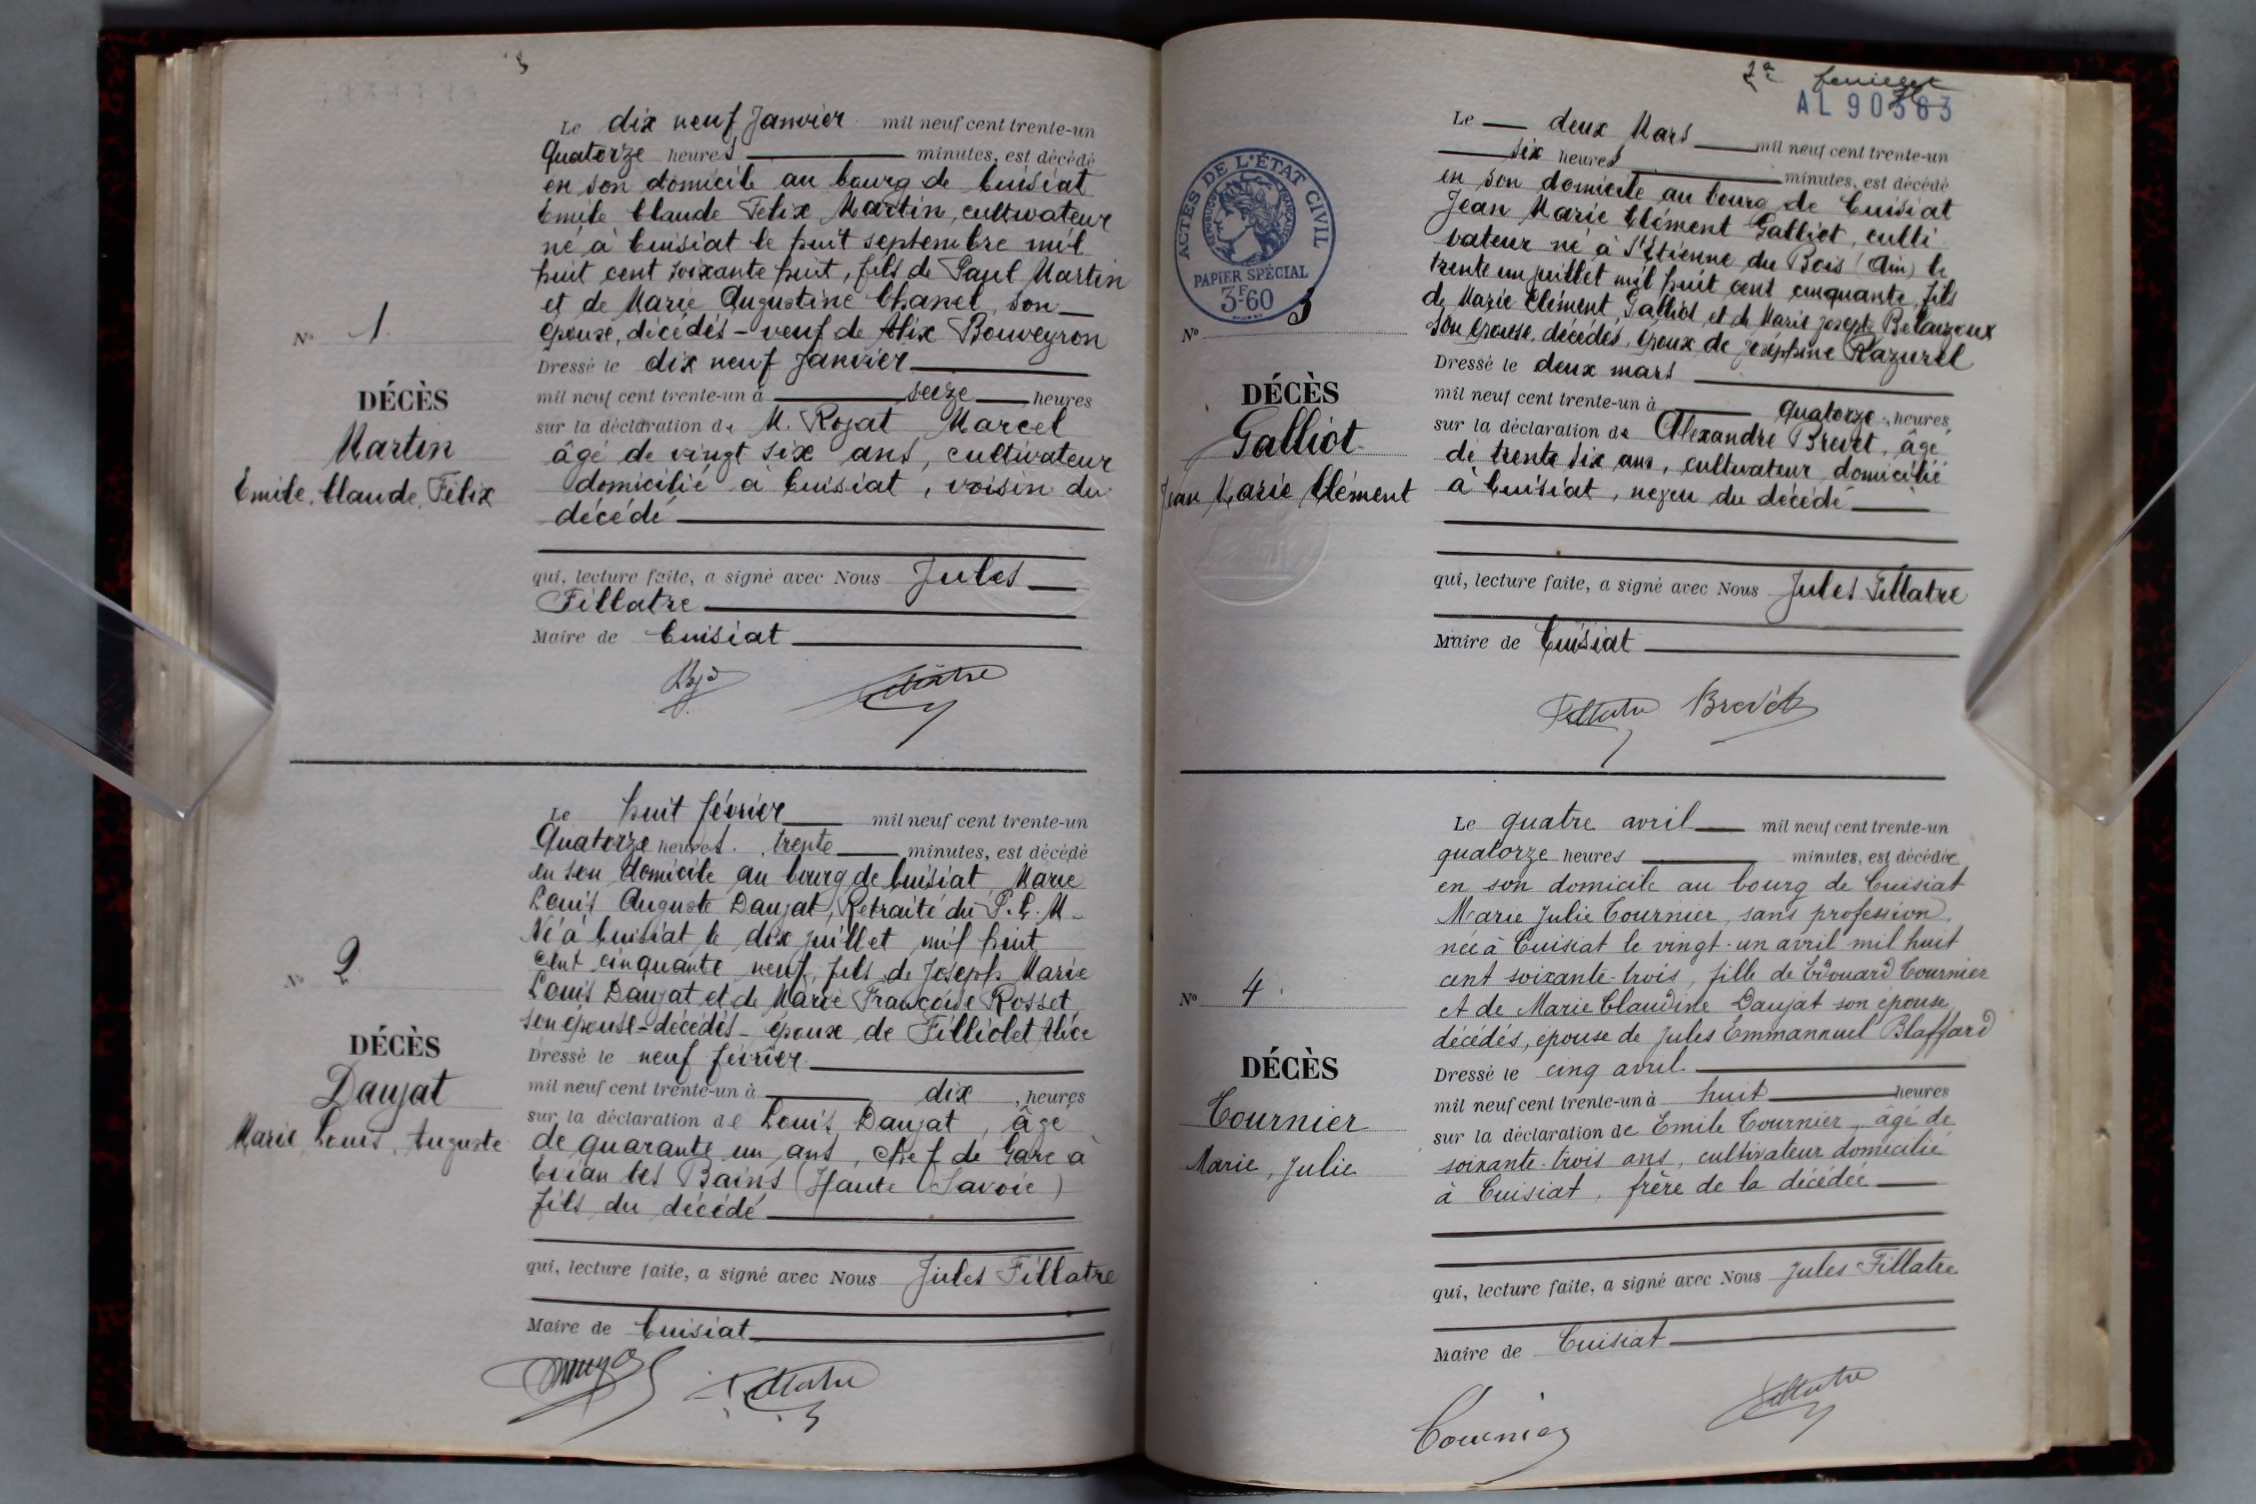 Le dix neuf Janvier mil neuf cent trente-un
Quatorze heures minutes, est décédé
en son domicile au bourg de Cuisiat
Emile Claude Felix Martin, cultivateur
né à Cuisiat le huit septembre mil
huit cent soixante huit, fils de Paul Martin
et de Marie Augustine Chanel, son
épouse, décédés - veuf de Alix Bouveyron
N° 1
DÉCÈS
Martin
Emile, Claude, Félix
Dressé le dix neuf Janvier
mil neuf cent trente-un à seize heures
sur la déclaration de M. Rojat Marcel
âgé de vingt six ans, cultivateur
domicilié à Cuisiat, voisin du
décédé
qui, lecture faite, a signé avec Nous Jules
Fillatre
Maire de Cuisiat
Fillatre
Le huit février mil neuf cent trente-un
Quatorze heures trente minutes, est décédé
en son domicile au bourg de Cuisiat Marie
Louis Auguste Daujat, Retraité du P. L. M-
Né à Cuisiat le dix juillet mil huit
cent cinquante neuf, fils de Joseph Marie
Louis Daujat et de Marie Françoise Rosset
son épouse - décédés - époux de Filliolet Alice
N° 2
DÉCÈS
Daujat
Marie, Louis, Auguste
Dressé le neuf février
mil neuf cent trente-un à dix, heures
sur la déclaration de Louis Daujat, âgé
de quarante un ans, chef de Gare à
Evian les Bains (Haute Savoie)
fils du décédé
qui, lecture faite, a signé avec Nous Jules Fillatre
Maire de Cuisiat
Fillatre
2e feuillet
AL 90383
Le deux Mars mil neuf cent trente-un
six heures minutes, est décédé
en son domicile au bourg de Cuisiat
Jean Marie Clément Galliot, culti
vateur né à St Etienne du Bois (Ain) le
trente un juillet mil huit cent cinquante, fils
de Marie Clément Galliot et de Marie Joseph
son épouse, décédés, époux de Joséphine Razurel
ACTES DE L'ÉTAT CIVIL
RÉPUBLIQUE FRANÇAISE
PAPIER SPÉCIAL
3F.60
N° 3
DÉCÈS
Galliot
Jean Marie Clément
Dressé le deux mars
mil neuf cent trente-un à Quatorze, heures
sur la déclaration de Alexandre Brevet, âgé
de trente six ans, cultivateur domicilié
à Cuisiat, neveu du décédé
qui, lecture faite, a signé avec Nous Jules Fillatre
Maire de Cuisiat
Fillatre Brevet
Le quatre avril mil neuf cent trente-un
quatorze heures minutes, est décédée
en son domicile au bourg de Cuisiat
Marie Julie Tournier, sans profession
née à Cuisiat le vingt-un avril mil huit
cent soixante-trois, fille de Edouard Tournier
et de Marie Claudine Daujat son épouse,
décédés, épouse de Jules Emmannuel Blaffard
N° 4.
DÉCÈS
Tournier
Marie, Julie
Dressé le cinq avril
mil neuf cent trente-un à huit heures
sur la déclaration de Emile Tournier, âgé de
soixante-trois ans, cultivateur domicilié
à Cuisiat, frère de la décédée
qui, lecture faite, a signé avec Nous Jules Fillatre
Maire de Cuisiat
Tournier Fillatre